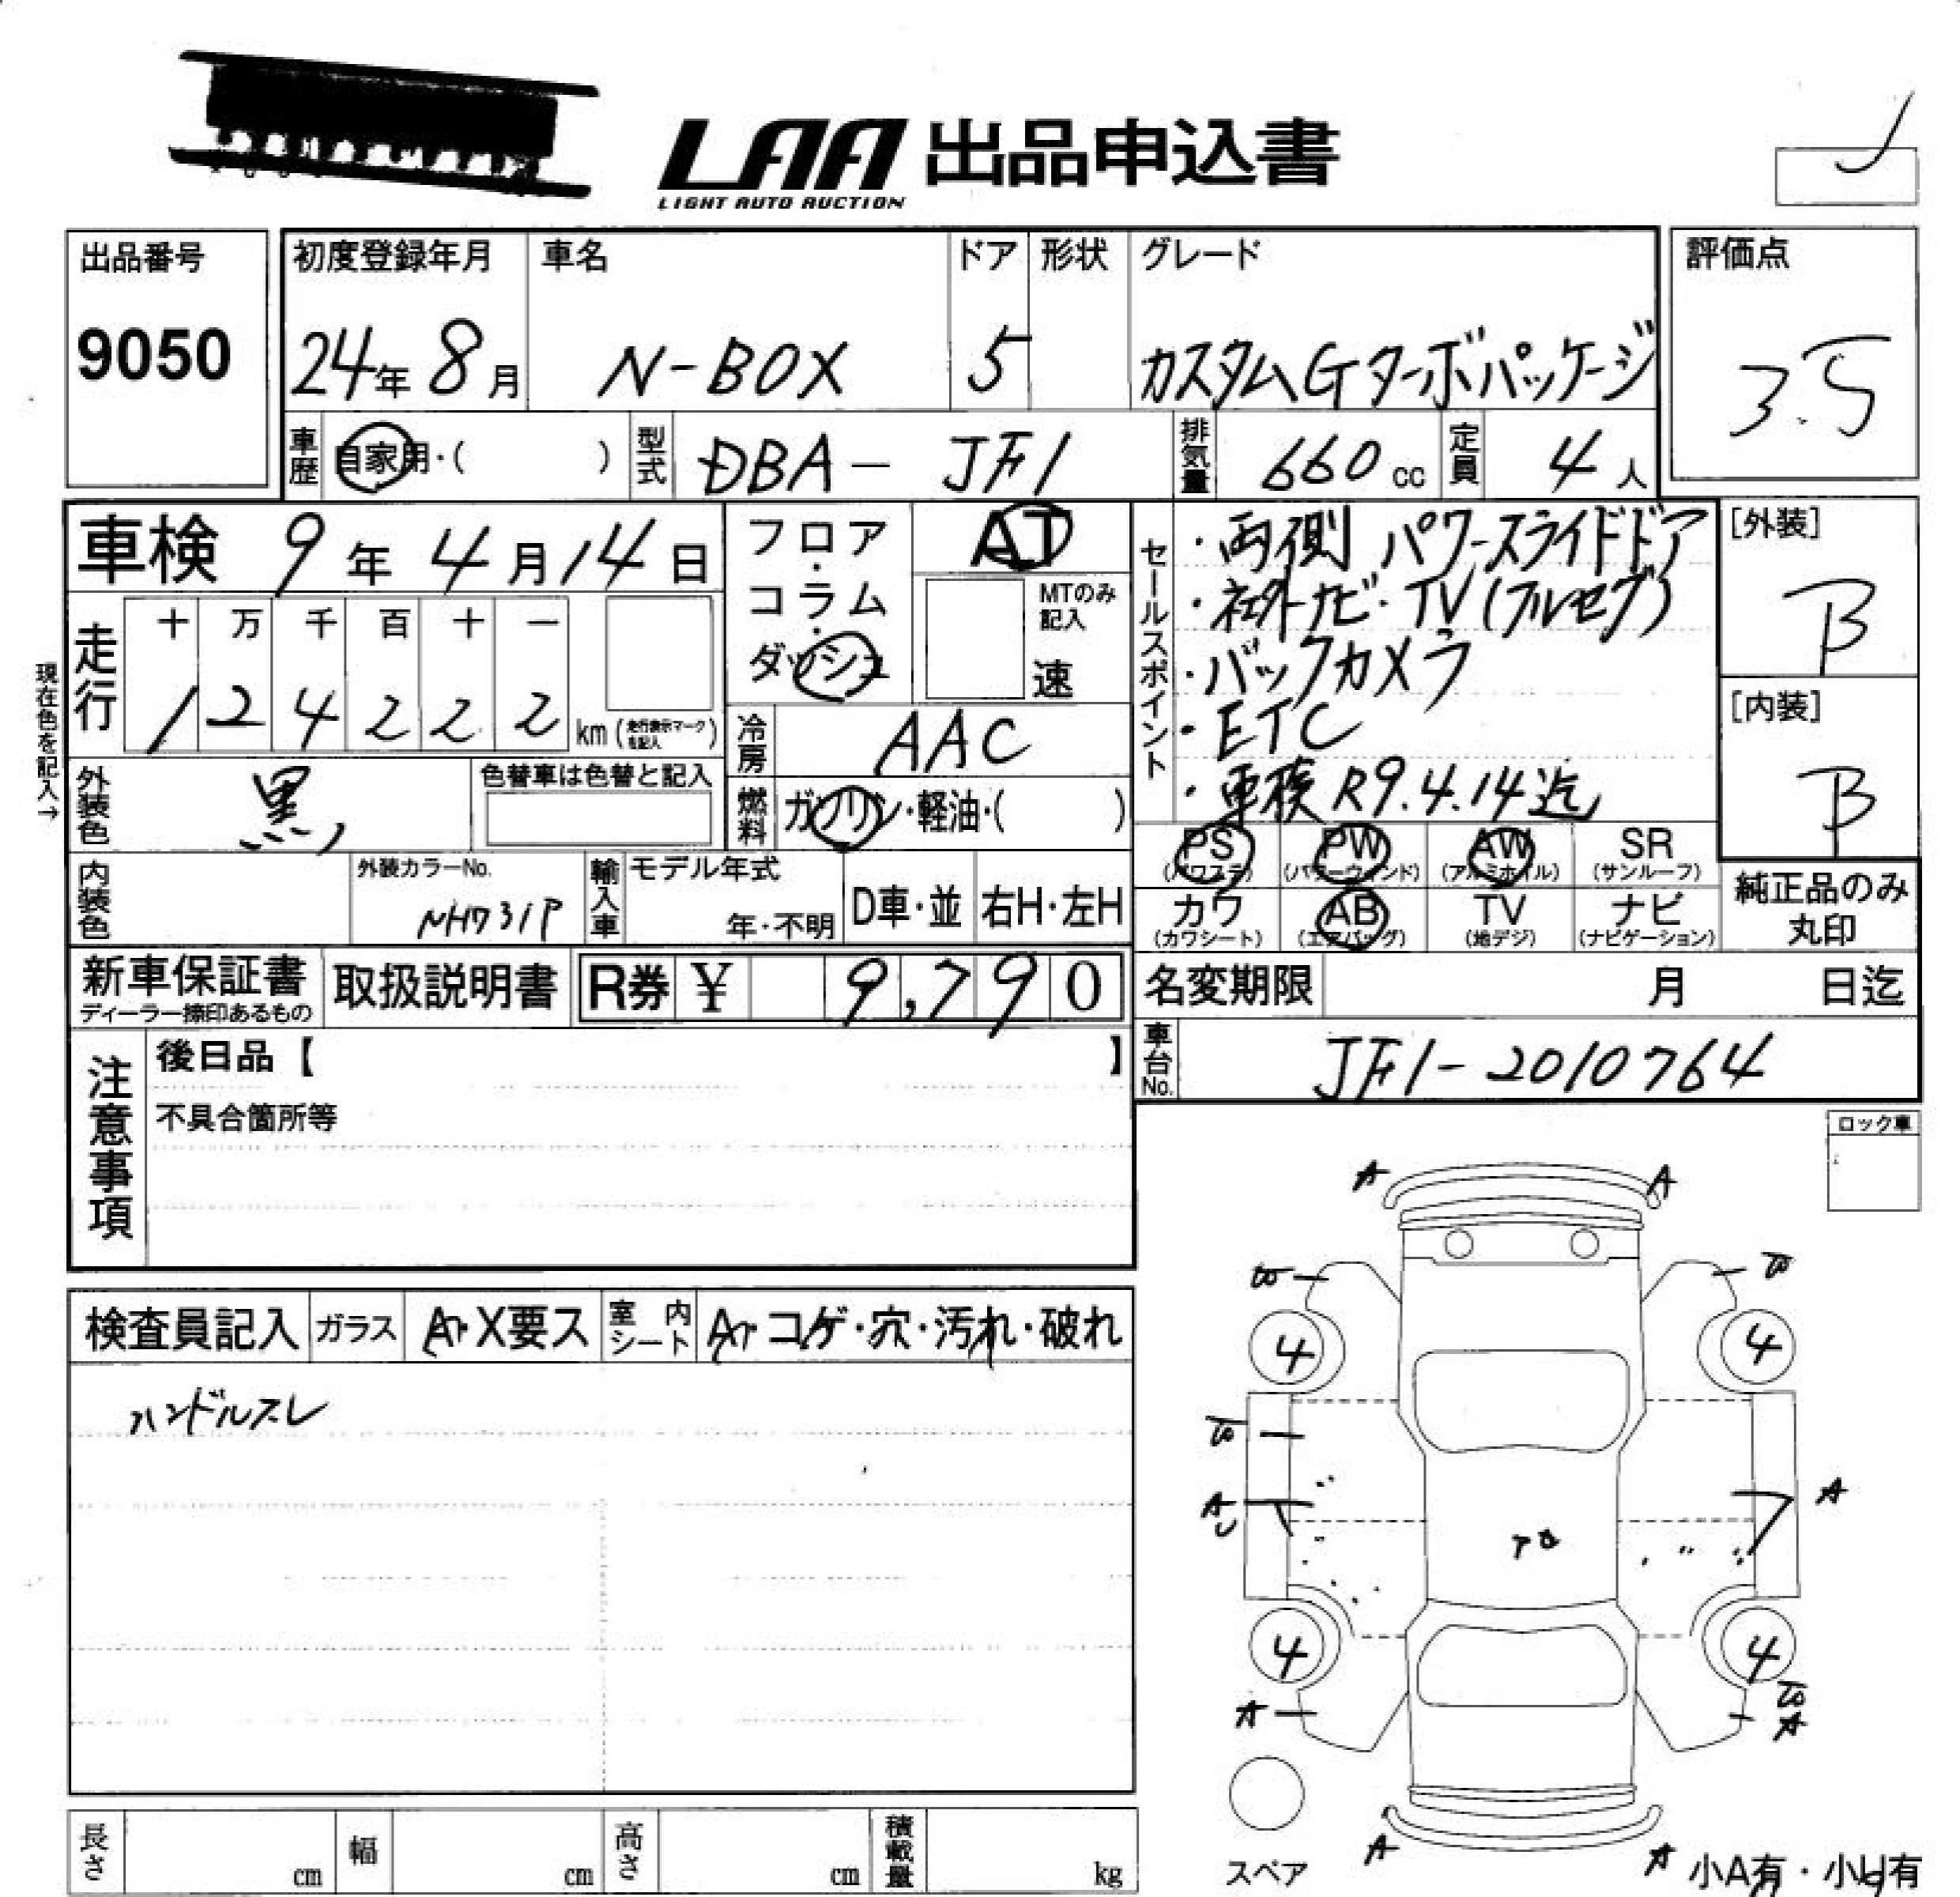 LAA 出品申込書
LIGHT AUTO AUCTION
出品番号 初度登録年月 車名 ドア 形状 グレード 評価点
9050 24年 8月 N-BOX 5 カスタムGターボパッケージ 3.5
車歴 自家用・( ) 型式 DBA-JF1 排気量 660cc 定員 4人
車検 9年 4月14日 フロア・コラム・ダッシュ AT
MTのみ記入 速
セールスポイント
・両側パワースライドドア
・社外ナビ・TV(フルセグ)
・バックカメラ
・ETC
・車検 R9.4.14迄
[外装] B
[内装] B
現在色を記入→
走行 十 万 千 百 十 一
1 2 4 2 2 2 km (走行表示マークを記入)
冷房 AAC
外装色 黒 色替車は色替と記入 燃料 ガソリン・軽油・( )
PS (パワステ) PW (パワーウィンド) AW (アルミホイル) SR (サンルーフ)
カワ (カワシート) AB (エアバッグ) TV (地デジ) ナビ (ナビゲーション)
純正品のみ丸印
内装色 外装カラーNo. NH731P 輸入車 モデル年式 年・不明 D車・並 右H・左H
新車保証書 ディーラー捺印あるもの 取扱説明書 R券 ¥ 9,790 名変期限 月 日迄
車台No. JF1-2010764
注意事項 後日品【 】
不具合箇所等
ロック車
検査員記入 ガラス A・X要ス 室内シート A・コゲ・穴・汚れ・破れ
ハンドルスレ
A A
4 4
A A
4 4
A A
A A
スペア 小A有・小U有
長さ cm 幅 cm 高さ cm 積載量 kg